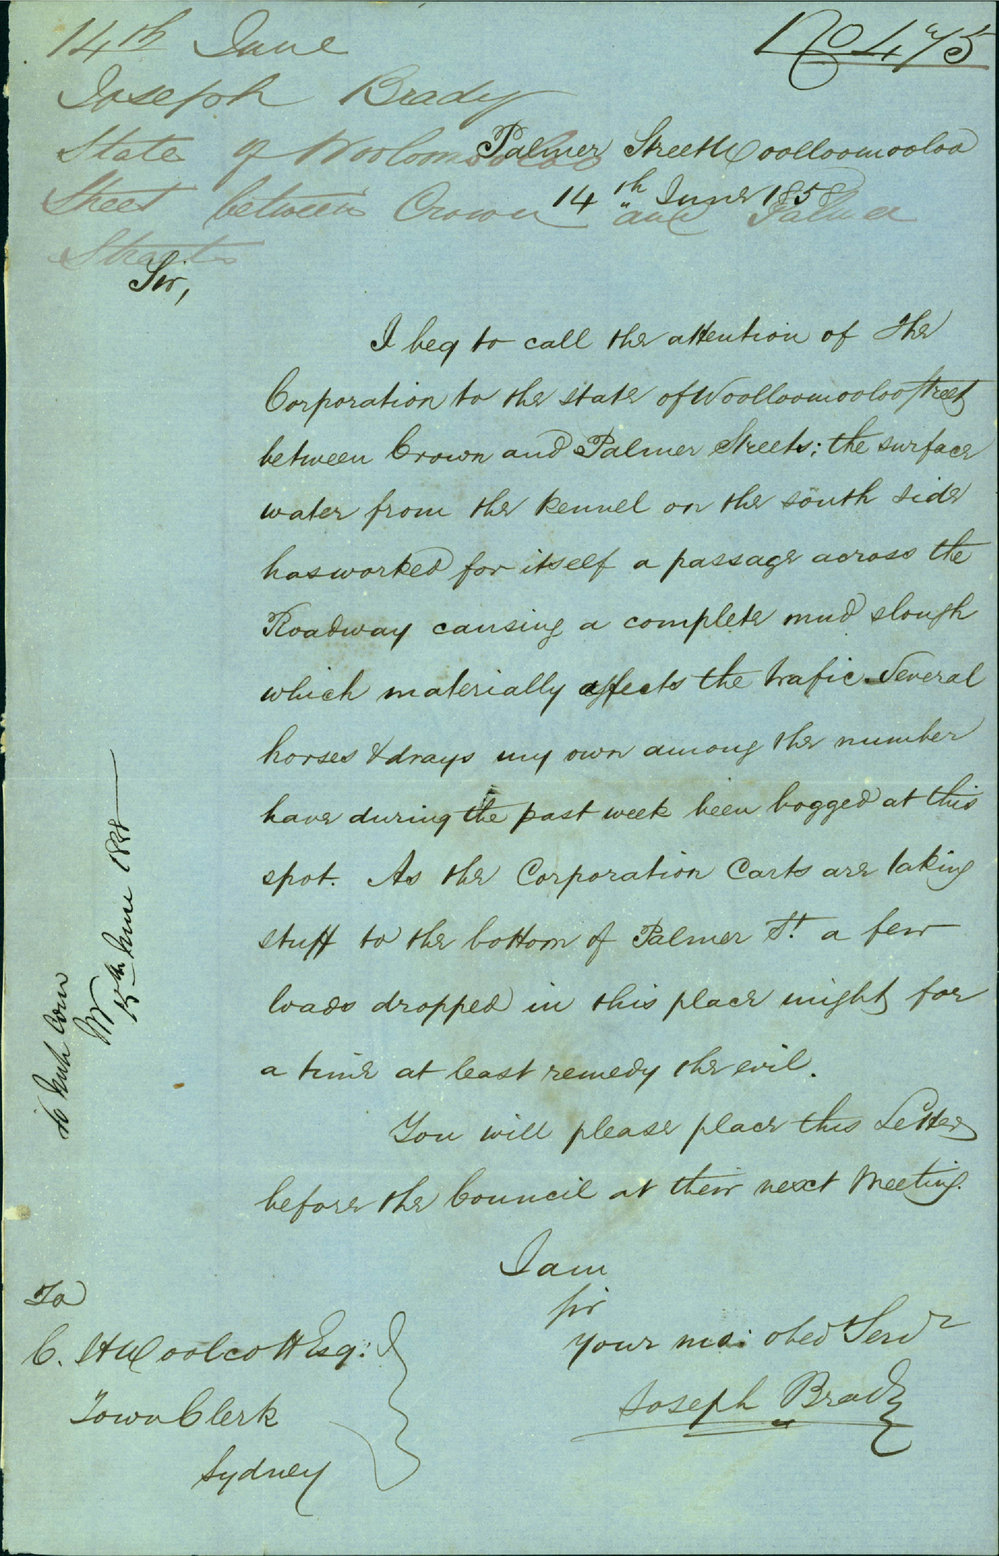 No 475
14th June
Joseph Brady
State of Wooloomooloo
Street between Crown and Palmer
Streets
Palmer Street Woolloomooloo
14th June 1858
Sir,
I beg to call the attention of The
Corporation to the state of Woolloomooloo Street
between Crown and Palmer Streets; the surface
water from the kennel on the south side
has worked for itself a passage across the
Roadway causing a complete mud slough
which materially affects the trafic. Several
horses & drays my own among the number
have during the past week been bogged at this
spot. As the Corporation Carts are taking
stuff to the bottom of Palmer St. a few
loads dropped in this place might for
a time at least remedy the evil.
You will please place this Letter
before the Council at their next Meeting.
I am
Sir
Your mo: obed Servr
Joseph Brady
To
C. H Woolcott Esq:
Town Clerk
Sydney
15th June 1858